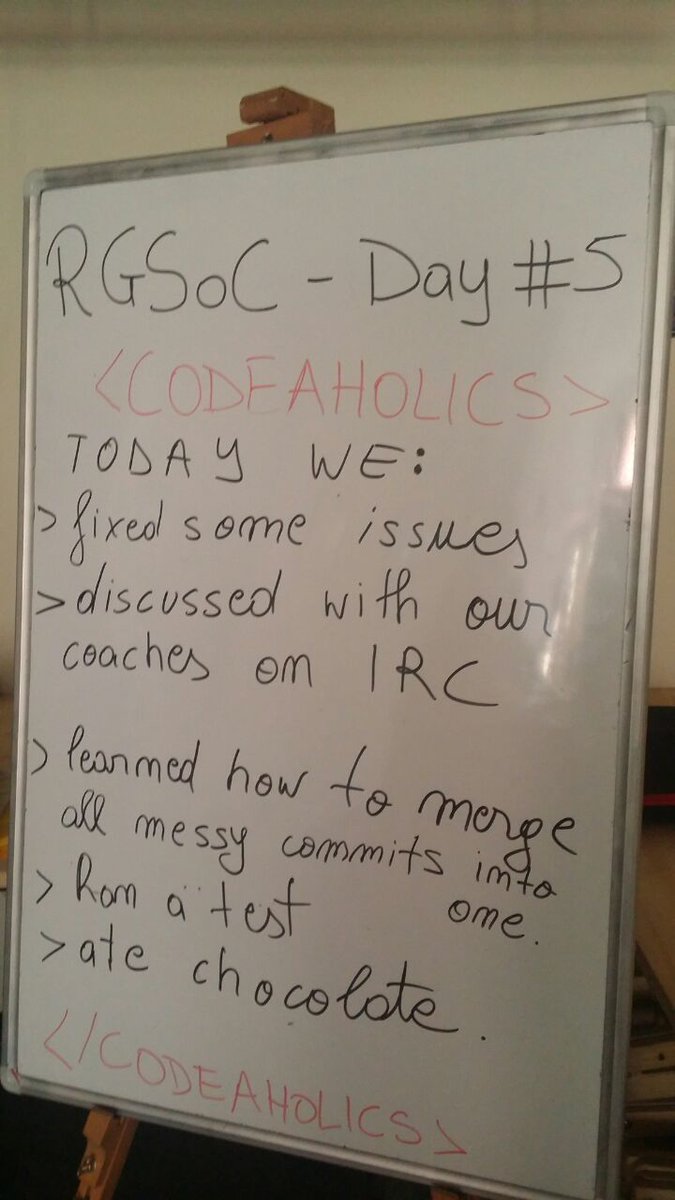 RGSoC - Day #5
<CODEAHOLICS>
TODAY WE:
> fixed some issues
> discussed with our
coaches on IRC
> learned how to merge
all messy commits into
one.
> Ran a test
> ate chocolate.
</CODEAHOLICS>